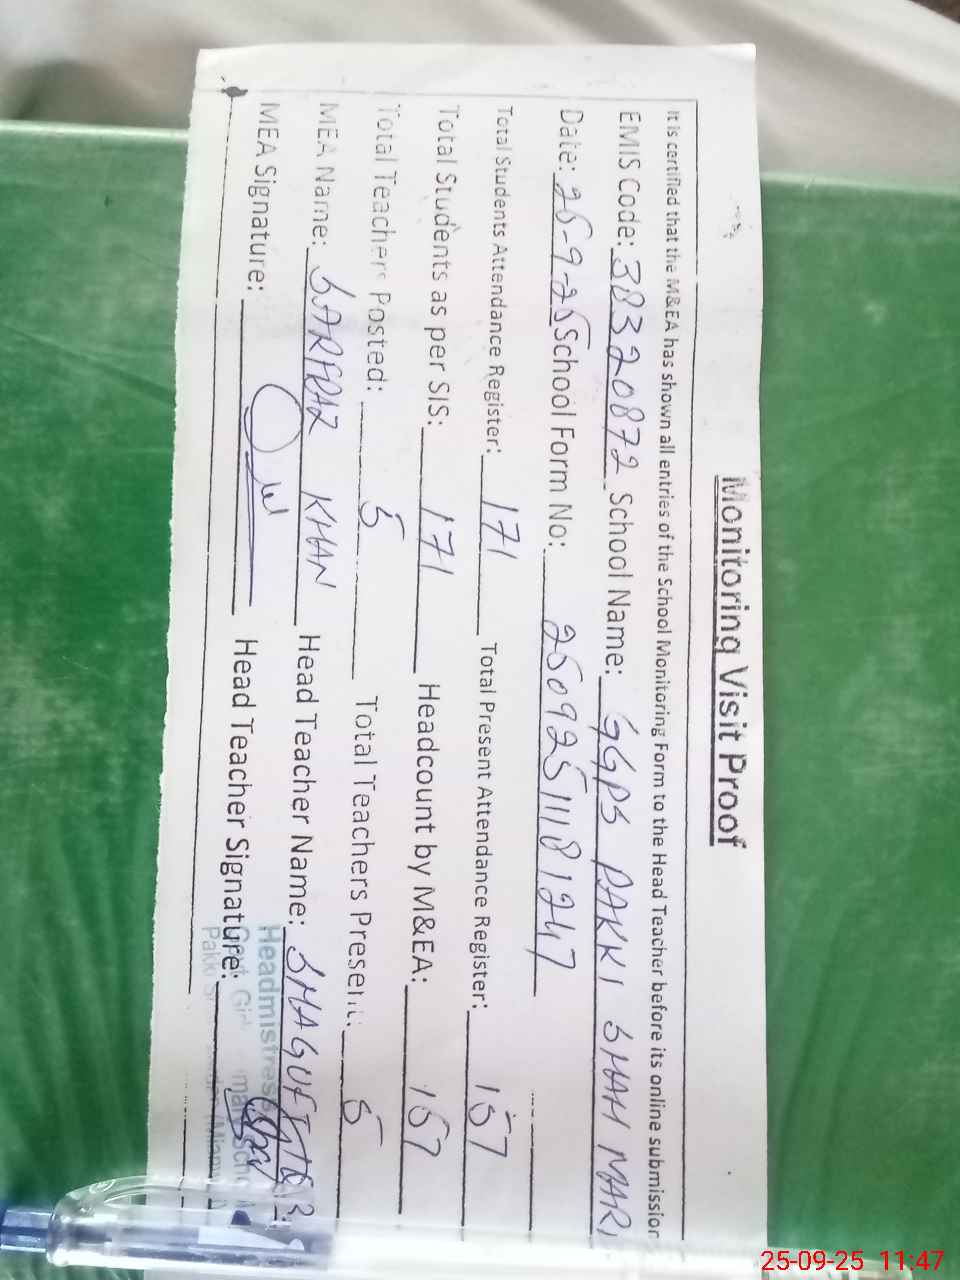 Monitoring Visit Proof
It is certified that the M&EA has shown all entries of the School Monitoring Form to the Head Teacher before its online submission
EMIS Code: 38320872 School Name: GGPS PAKKI SHAH MARI
Date: 25-9-25 School Form No: 25092511181247
Total Students Attendance Register: 171 Total Present Attendance Register: 157
Total Students as per SIS: 171 Headcount by M&EA: 157
Total Teachers Posted: 5 Total Teachers Present: 5
MEA Name: SARFRAZ KHAN Head Teacher Name: SHAGUFTA
MEA Signature: Head Teacher Signature:
Headmistress
Govt. Girls
Pakki
25-09-25 11:47